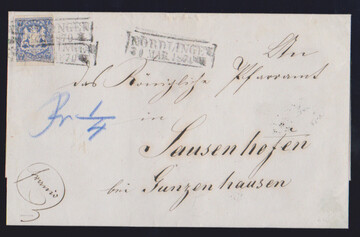 NÖRDLINGEN
MAR. 1870
An
das Königliche Pfarramt
in
Sausenhofen
bei Gunzenhausen
Fr 1/4